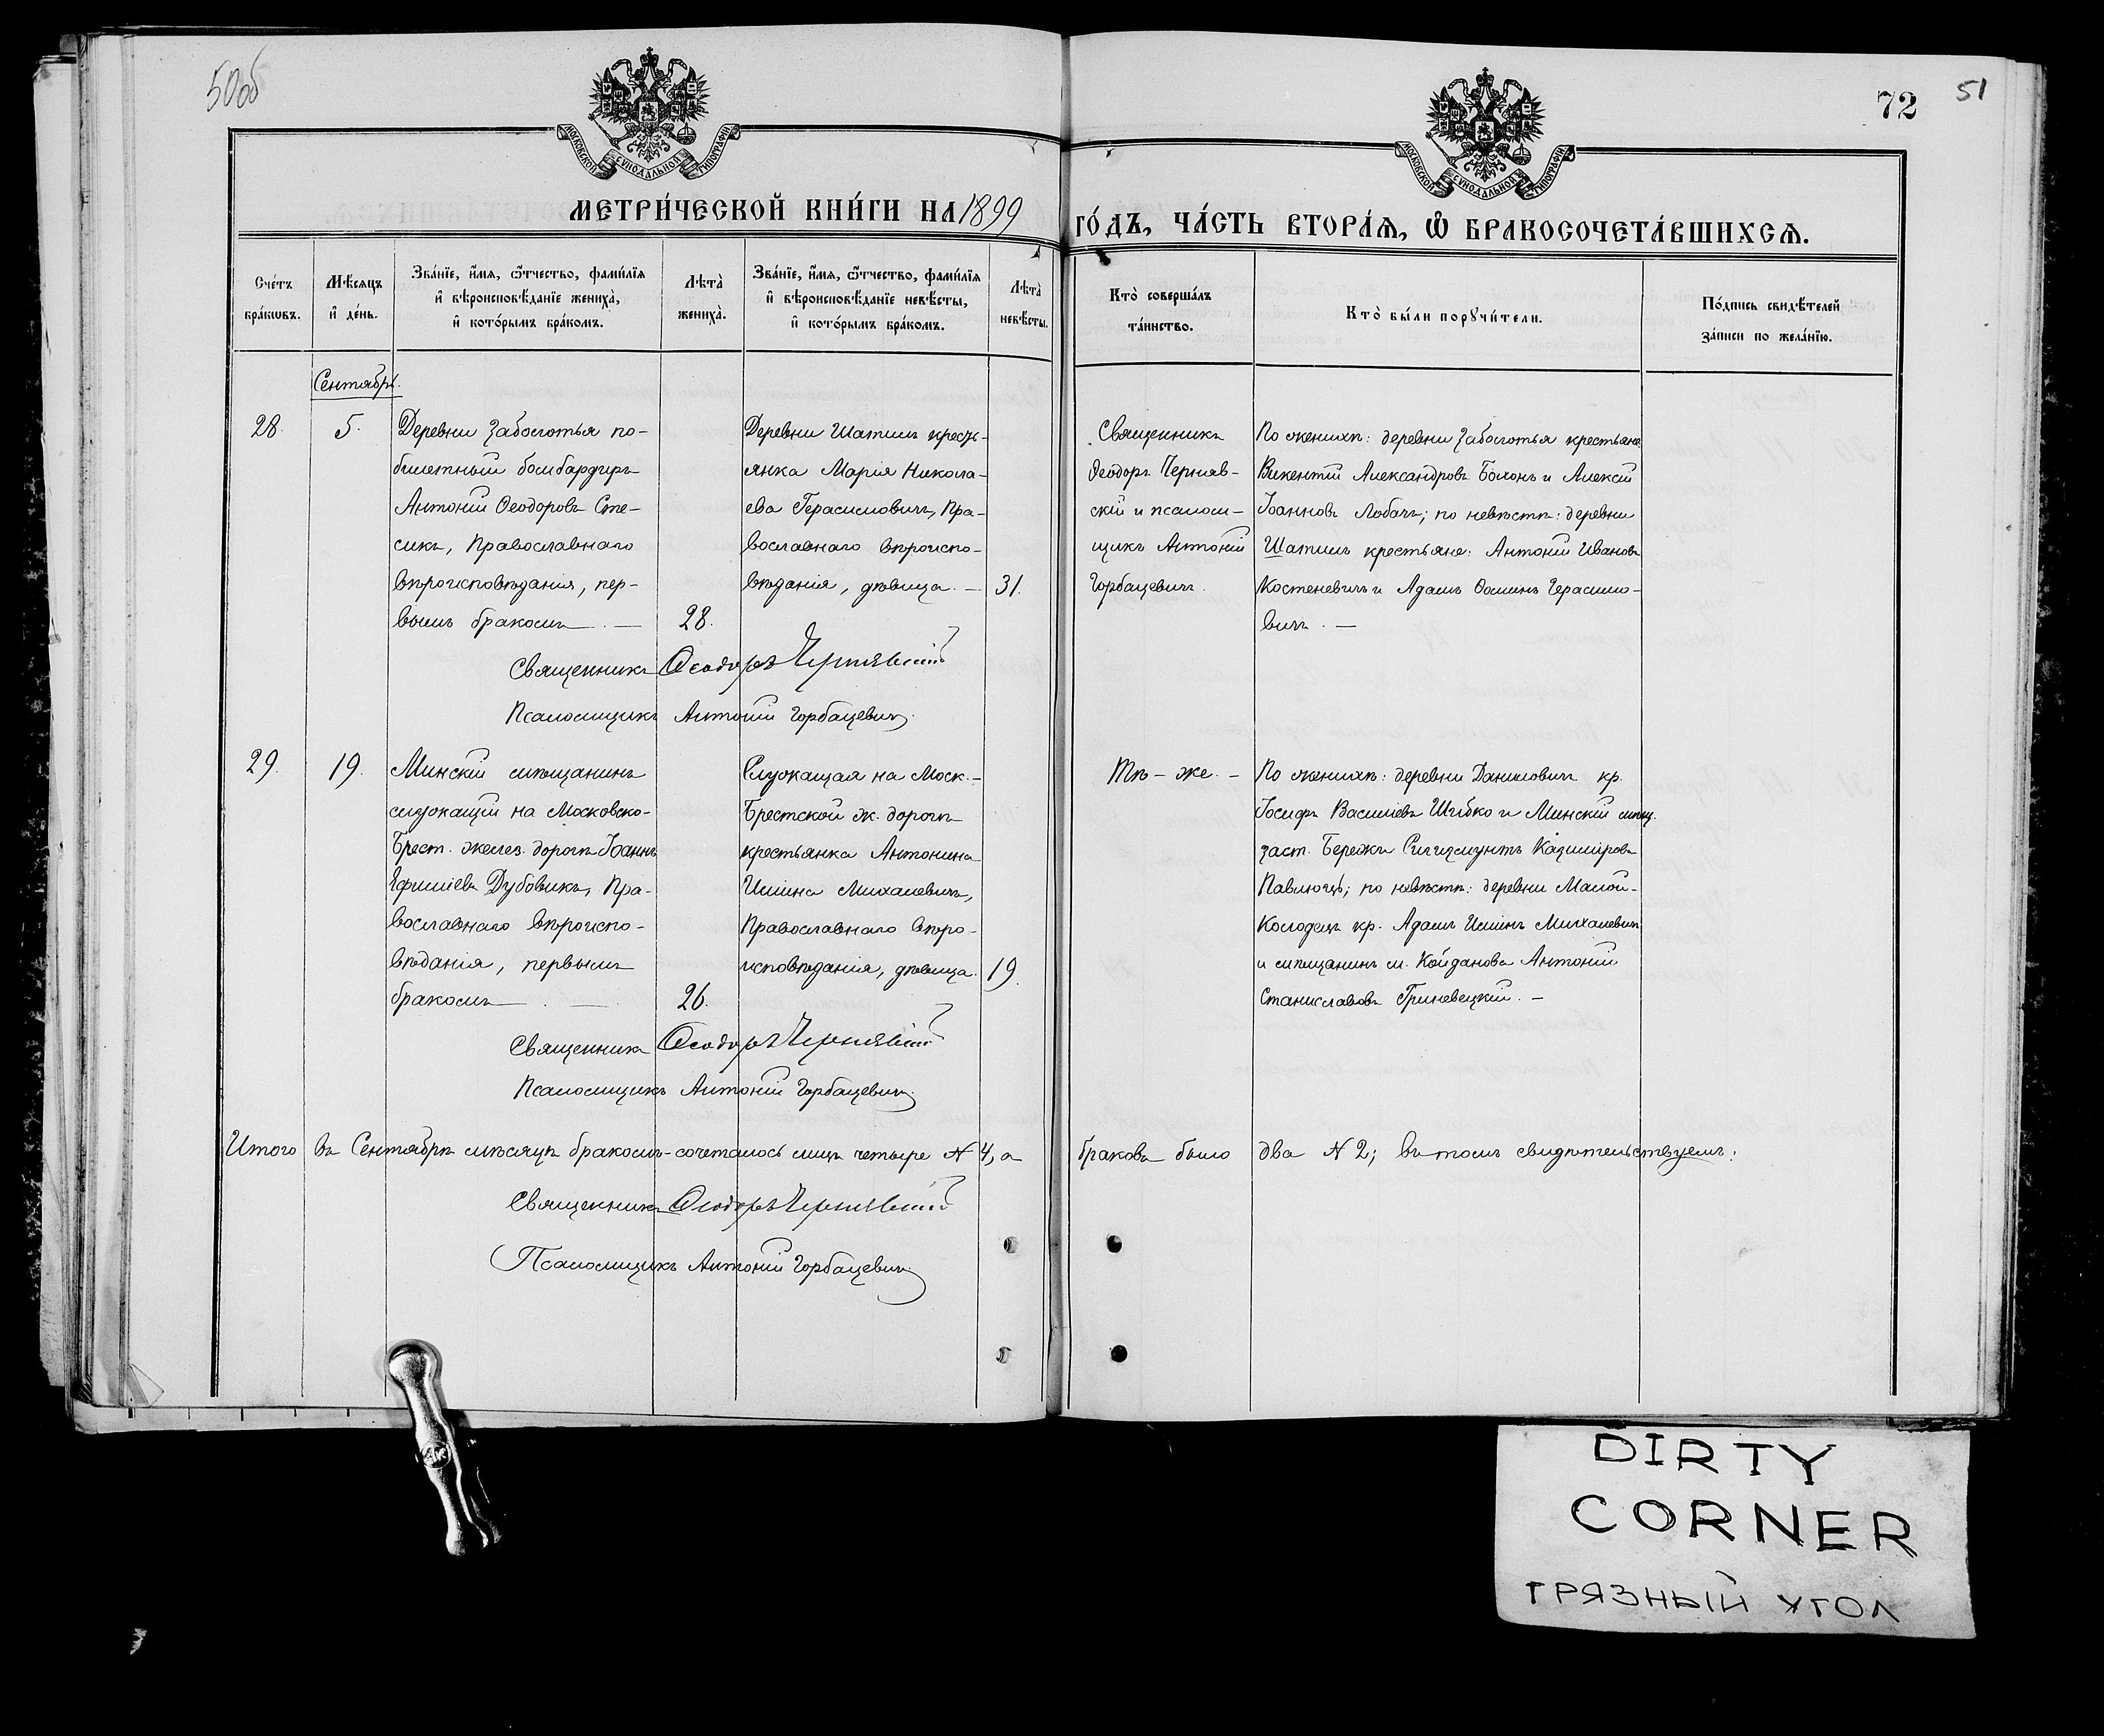 50об
72
51
МОСКОВСКОЙ СѴНОДАЛЬНОЙ ТИПОГРАФІИ
МОСКОВСКОЙ СѴНОДАЛЬНОЙ ТИПОГРАФІИ
МЕТРИ́ЧЕСКОЙ КНИ́ГИ НА 1899
ГО́ДЪ, ЧА́СТЬ ВТОРА́Ѧ, Ѽ БРАКОСОЧЕТА́ВШИХСѦ.
Сче́тъ
бра́кѡвъ.
Мѣ́сѧцъ
и҆ де́нь.
Зва́нїе, и҆́мѧ, ѻ҆́тчество, фамилїѧ
и҆ вѣроисповѣ́данїе жениха̀,
и҆ кото́рымъ бра́комъ.
Лѣта̀
жениха̀.
Зва́нїе, и҆́мѧ, ѻ҆́тчество, фамилїѧ
и҆ вѣроисповѣ́данїе невѣ́сты,
и҆ кото́рымъ бра́комъ.
Лѣта̀
невѣ́сты.
Кто̀ соверша́лъ
та́инство.
Кто̀ бы́ли порꙋчи́тели.
По́дпись свидѣ́телей
за́писи по жела́нїю.
Сентябрь.
28.
5.
Деревни Заболотья по-
билетный бомбардиръ
Антоній Ѳеодоровъ Сте-
сикъ, Православнаго
вѣроисповѣданія, пер-
вымъ бракомъ. —
28.
Деревни Шатилъ кресть-
янка Марія Никола-
ева Герасимовичъ, Пра-
вославнаго вѣроиспо-
вѣданія, дѣвица. —
31.
Священникъ
Ѳеодоръ Черняв-
скій и псалом-
щикъ Антоній
Горбацевичъ.
По женихѣ: деревни Заболотья крестьяне
Викентій Александровъ Болонъ и Алексій
Іоанновъ Лобачъ; по невѣстѣ: деревни
Шатилъ крестьяне: Антоній Ивановъ
Костеневичъ и Адамъ Ѳоминъ Герасимо-
вичъ. —
Священникъ Ѳеодоръ Чернявскій
Псаломщикъ Антоній Горбацевичъ.
29.
19.
Минскій мѣщанинъ
служащій на Московско-
Брест. желез. дорогѣ Іоаннъ
Ефиміевъ Дубовикъ, Пра-
вославнаго вѣроиспо-
вѣданія, первымъ
бракомъ. —
26.
Служащая на Моск.-
Брестской ж. дорогѣ
крестьянка Антонина
Ильина Михалевичъ,
Православнаго вѣро-
исповѣданія, дѣвица.
19.
Тѣ-же. —
По женихѣ: деревни Даниловичъ кр.
Іосифъ Василіевъ Шибко и Минскій мѣщ.
заст. Бережа Сигизмунтъ Казиміровъ
Павлюць; по невѣстѣ: деревни Малой-
Колодецъ кр. Адамъ Ильинъ Михалевичъ
и мѣщанинъ м. Койданова Антоній
Станиславовъ Гриневецкій. —
Священникъ Ѳеодоръ Чернявскій
Псаломщикъ Антоній Горбацевичъ.
Итого въ Сентябрѣ мѣсяцѣ бракомъ-сочеталось лицъ четыре № 4, а браковъ было два № 2; въ томъ свидѣтельствуемъ:
Священникъ Ѳеодоръ Чернявскій
Псаломщикъ Антоній Горбацевичъ.
DIRTY
CORNER
ГРЯЗНЫЙ УГОЛ